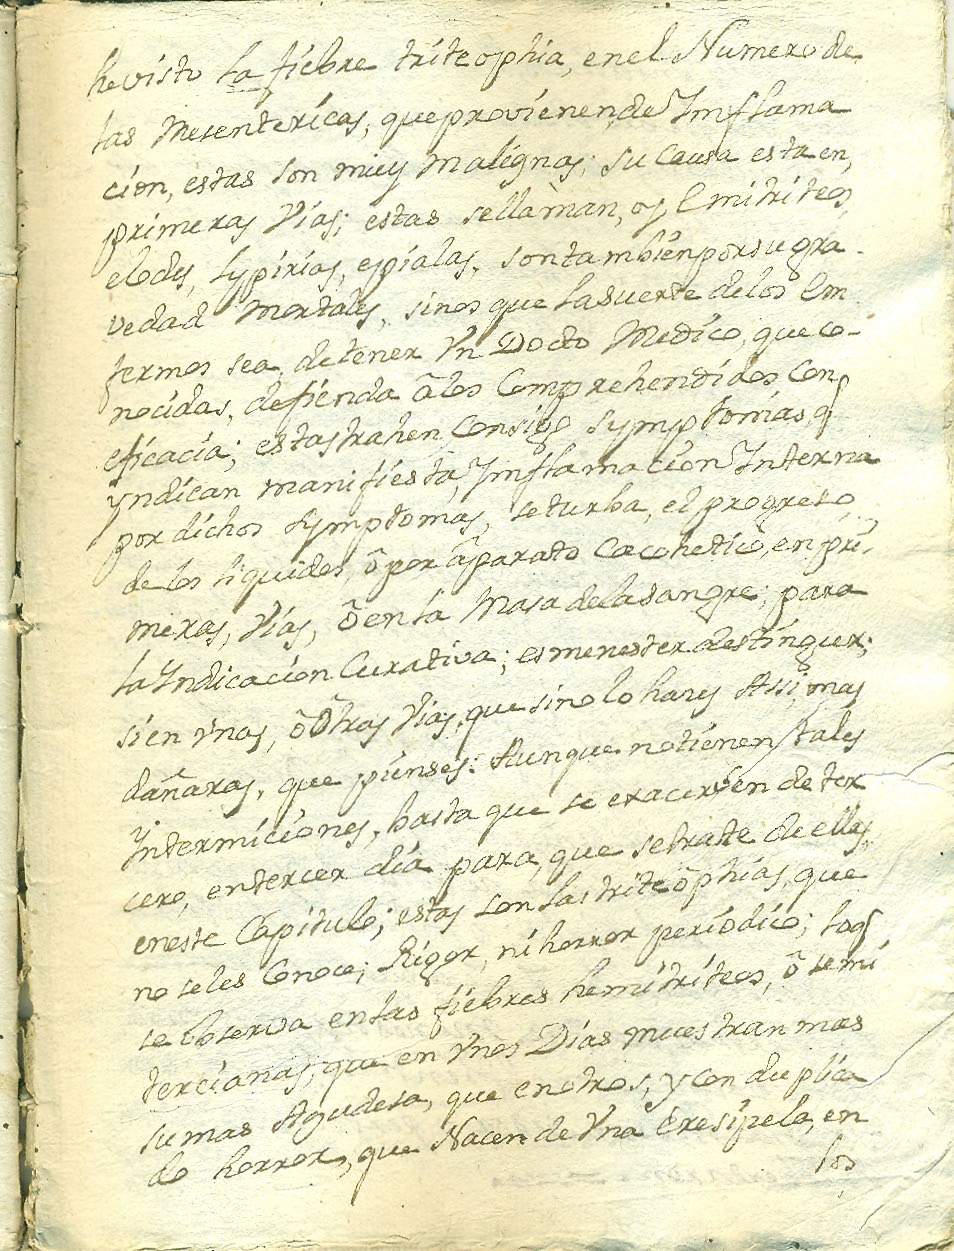 he visto la fiebre triteophia, en el Numero de
las Mesentericas, que provienen, de Imflama
cion, estas son muy malignas; su causa esta en,
primeras Vias; estas se llàman, Emitriteos,
elodes, lypirias, epialas, son tambien por su gra-
vedad Mortales, sinos que la suerte de los Em
fermos sea, de tener Vn Docto Medico, que co-
nocidas, defienda â los Comprehendidos Con
eficacia; estas trahen Consigo Symptomas, q
yndican manifiesta, Imflamacion Interna
por dichos symptomas, se turba, el progreso,
de los liquidos, ô por âparato Cacohetico, en pri-
meras, Vias, ô en la Masa de la sangre; para
la Yndicacion Curativa; es menester destinguir;
si en Vnas, ô Otras Vias, que sino lo hares Assi, mas
dañaras, que pienses: Aunque no tienen tales
Yntermiciones, hasta que se exacerven de ter
cero, en tercer dia para, que se trate de ellas,
en este Capitulo; estas son las triteôphias, que
no se les Conoce; Rigor, ni horror periodico; loq
se observa en las fiebres hemitriteos, ô semi
tercianas, que en Vnos Dias muestran mas
su mas Agudesa, que en otros, y con duplica
do horror, que Nacen de Vna Eresipela, en
los